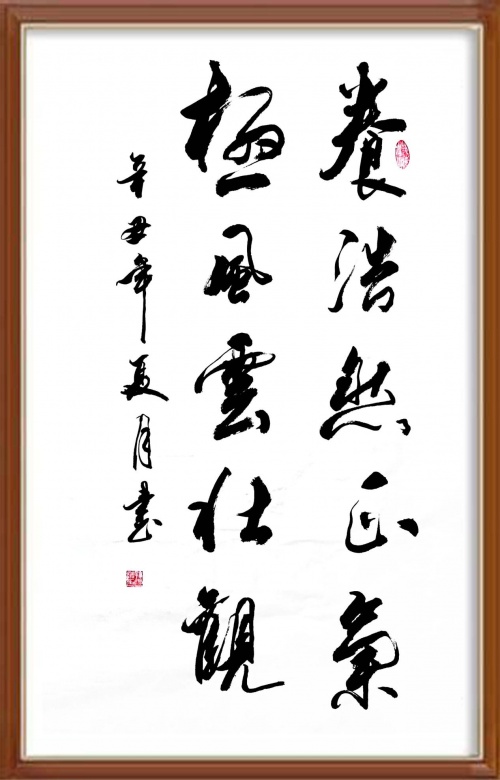 養浩然正氣
極風雲壯觀
辛丑年夏月書